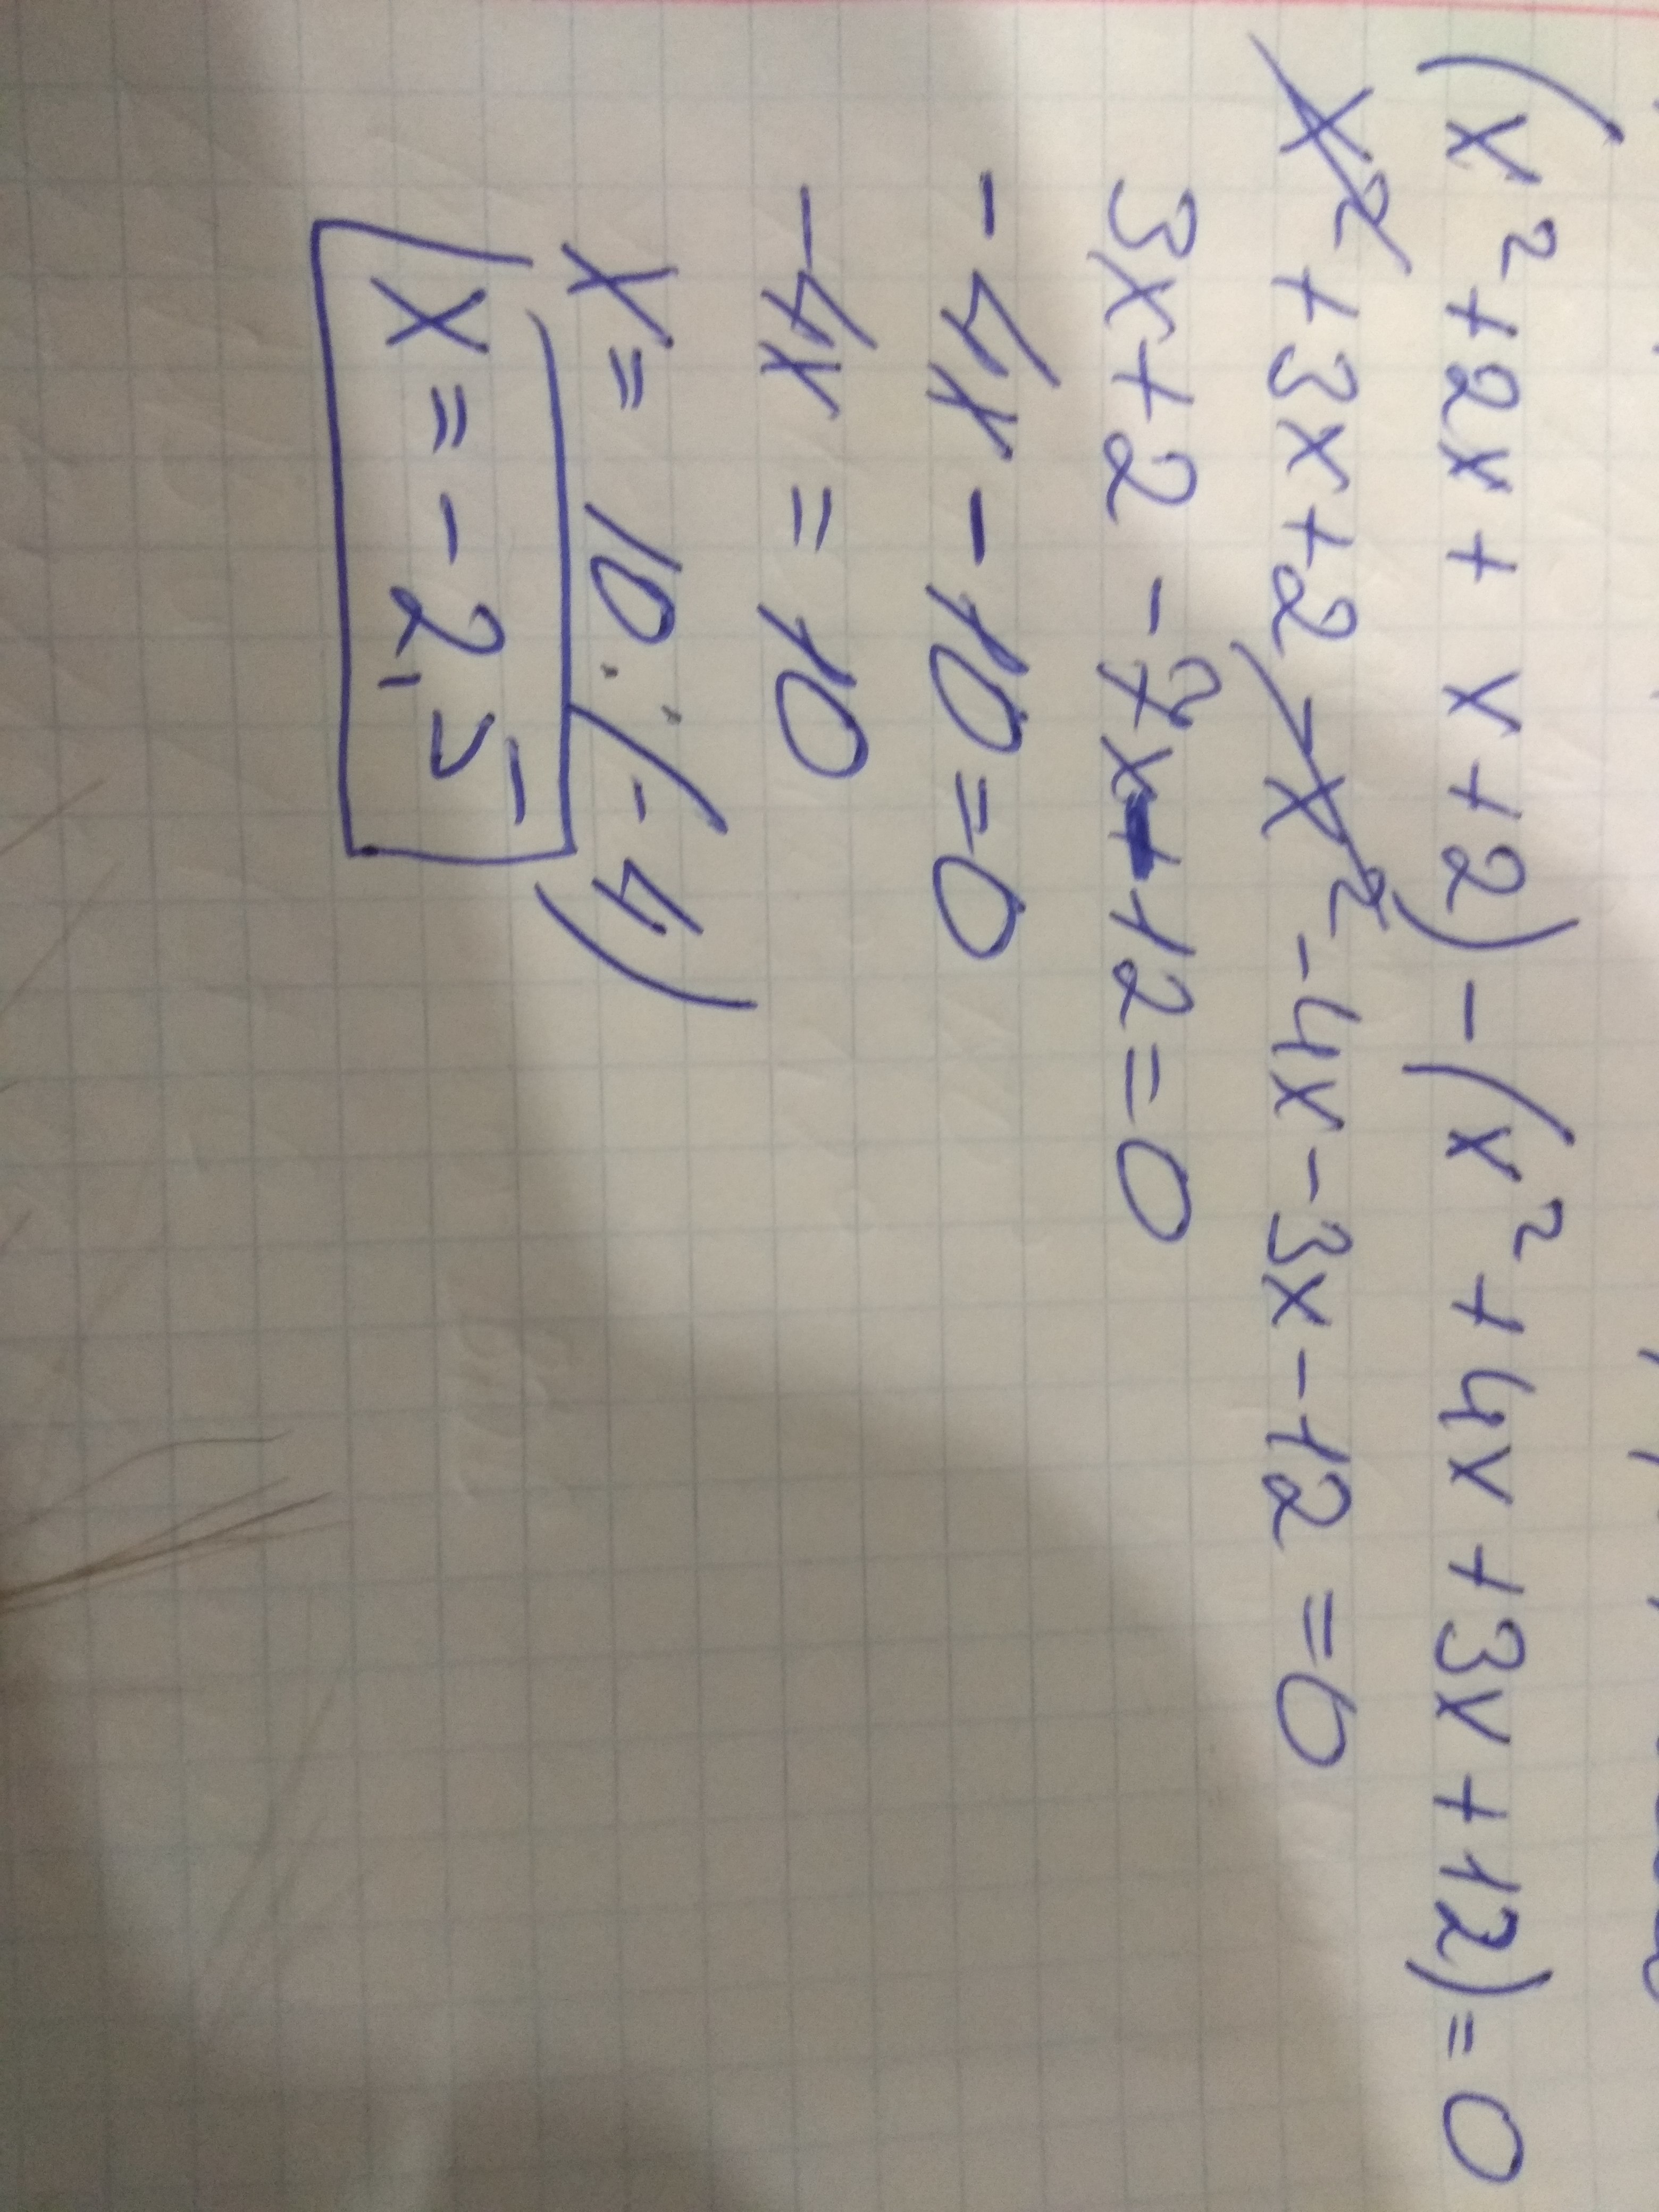 (x²+2x+x+2)-(x²+4x+3x+12)=0
x²+3x+2-x²-4x-3x-12=0
3x+2-7x-12=0
-4x-10=0
-4x=10
x=10:(-4)
x=-2,5